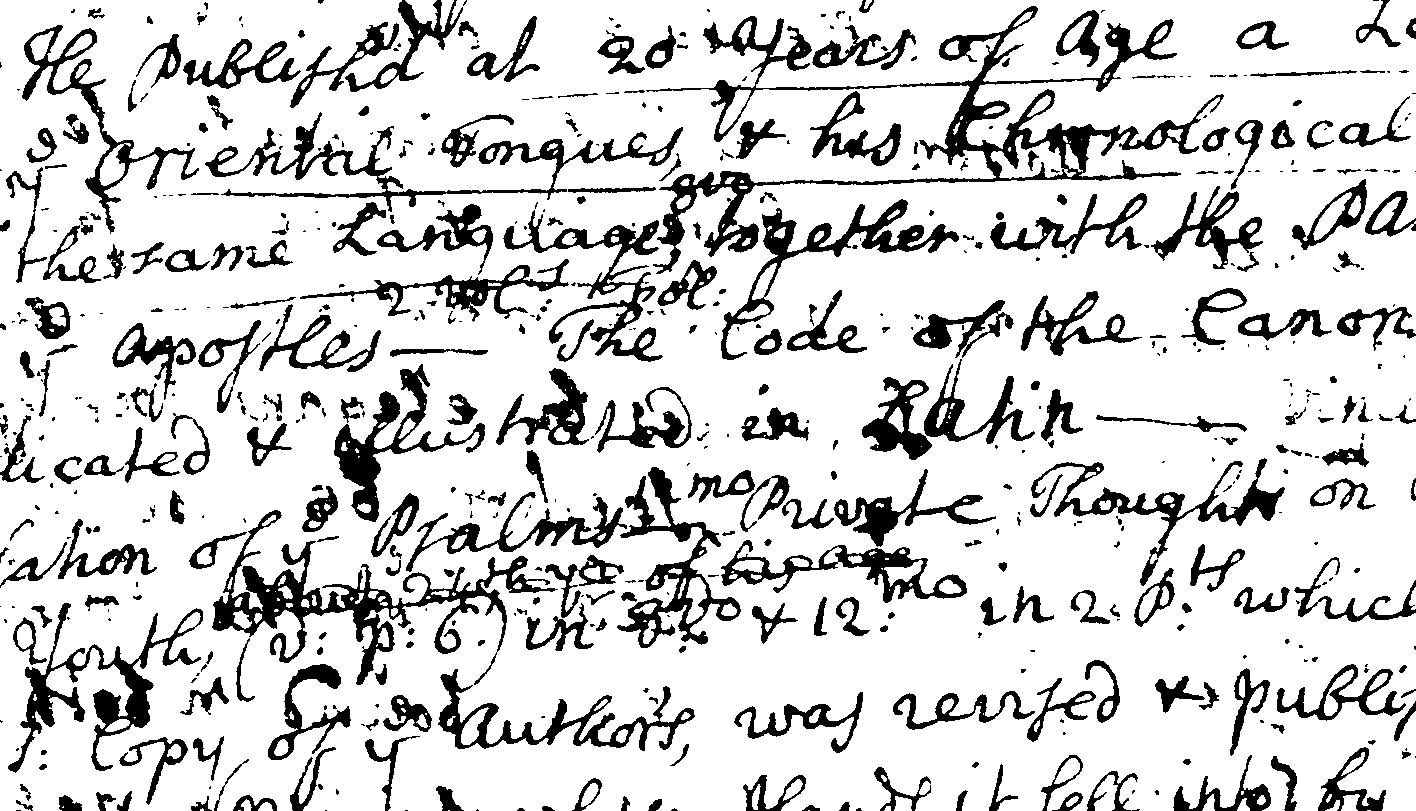 He Publish'd at 20 Years of Age a
yᵉ Oriental Tongues, & his Chronological
8vo
the same Language, together with the
2 vols Fol:
yᵉ Apostles — The Code of the Canon
licated & illustrated in Latin —
lation of yᵉ Psalms 12mo Private Thoughts on
about yᵉ 24th yr of his age
Youth, (v: p: 6.) in 8vo & 12:mo in 2 P:ts which
s: Copy of yᵉ Authors, was revised & publi
it fell into by